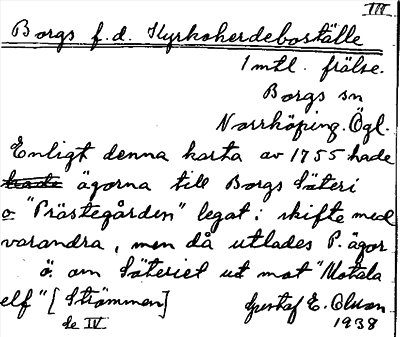 III
Borgs f.d. Kyrkoherdeboställe
1 mtl. frälse.
Borgs sn
Norrköping. Ögl.
Enligt denna karta av 1755 hade
hade ägorna till Borgs Säteri
o "Prästegården" legat i skifte med
varandra, men då utlades P. ägor
ö. om Säteriet ut mot "Motala
elf" [Strömmen] Gustaf E. Olsson
Se IV 1938